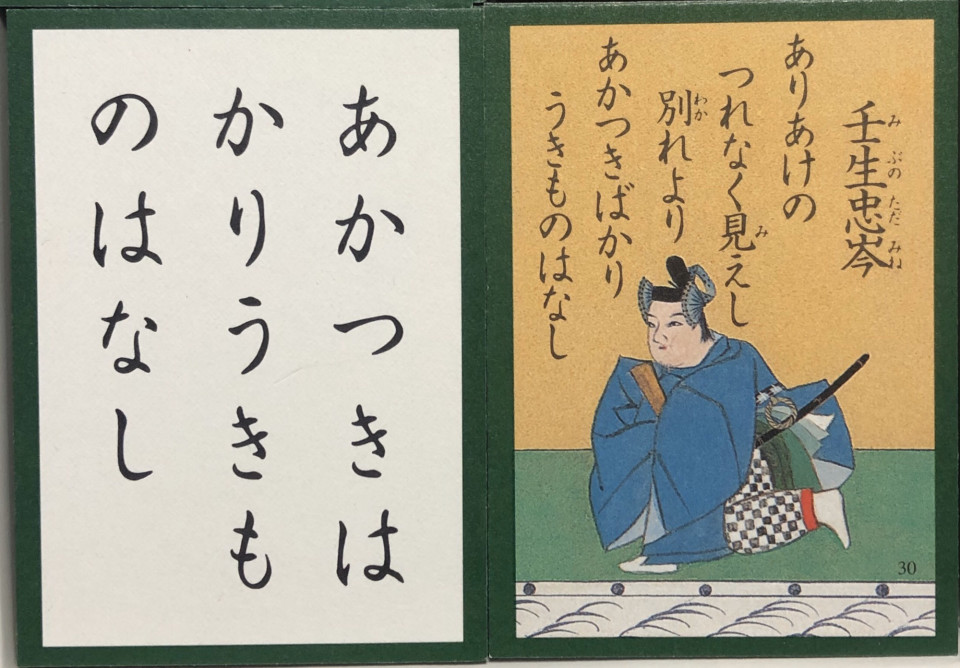 あかつきは
かりうきも
のはなし
壬生忠岑
みぶのただみね
ありあけの
つれなく見えし
み
別れより
わか
あかつきばかり
うきものはなし
30